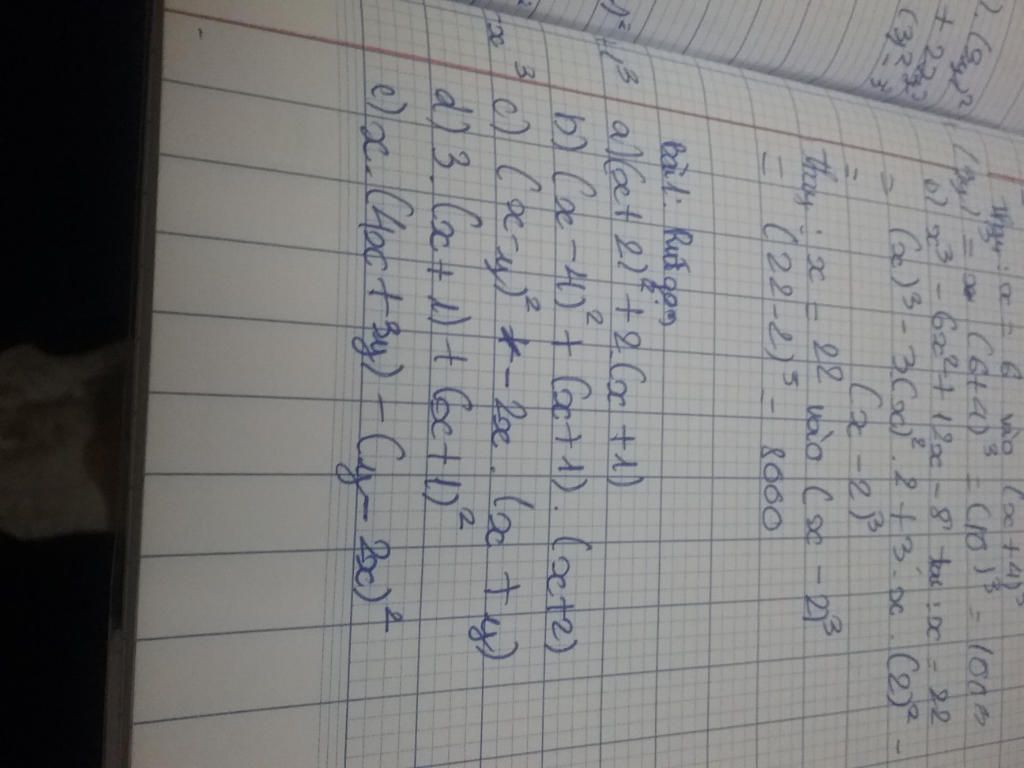 ). (3y)²
+ 27y³
Thay: x = 6 vào (x+4)³
= (6+4)³ = (10)³ = 100
b) x³ - 6x² + 12x - 8 tại: x = 22
= (x)³ - 3(x)².2 + 3.x.(2)² -
= (x - 2)³
Thay: x = 22 vào (x - 2)³
= (22 - 2)³ = 8000
bài 1: Rút gọn
a) (x+2)² + 2.(x+1)
b) (x-4)² + (x+1).(x+2)
c) (x-y)² - 2x.(x+y)
d) 3.(x+1) + (x+1)²
c) x.(4x+3y) - (y-2x)²